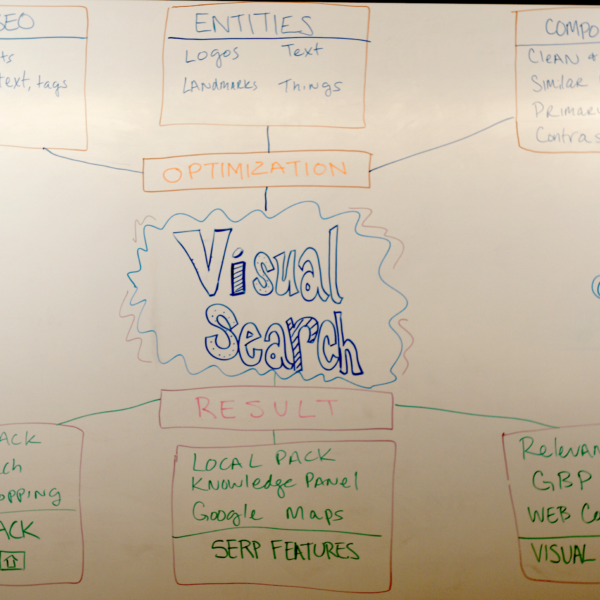 SEO
ENTITIES
Logos Text
Landmarks Things
Clean +
Similar
text, tags
Contras
OPTIMIZATION
Visual
Search
RESULT
ACK
LOCAL PACK
Knowledge Panel
Google Maps
SERP FEATURES
ACK
Relevan
GBP
WEB
VISUAL